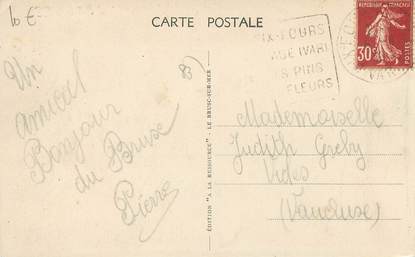 10 €
CARTE POSTALE
83
SIX-FOURS
FLEURS
RÉPUBLIQUE FRANÇAISE
30c
POSTES
VAR
Un
amical
Bonjour
du Brusc
Pierre
ÉDITION "A LA RESSOURCE" - LE BRUSC-SUR-MER
Mademoiselle
Judith Greby
(Vaucluse)